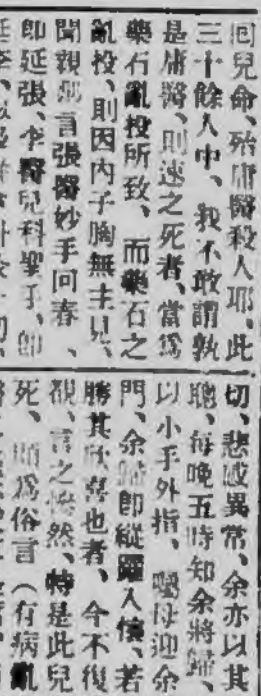 回兒命、殆庸醫殺人耶、此
三十餘人中、我不敢謂孰
是庸醫、則速之死者、當爲
藥石亂投所致、而藥石之
亂投、則因內子胸無主見、
聞親鄰言張醫妙手回春、
卽延張、李醫兒科聖手、卽
延李、
切、悲感異常、余亦以其
聰、每晚五時知余將歸、
以小手外指、囑母迎余
門、余歸卽縱躍人懷、若
勝其欣喜也者、今不復
覩、言之慘然、特是此兒
死、爲俗言（有病亂